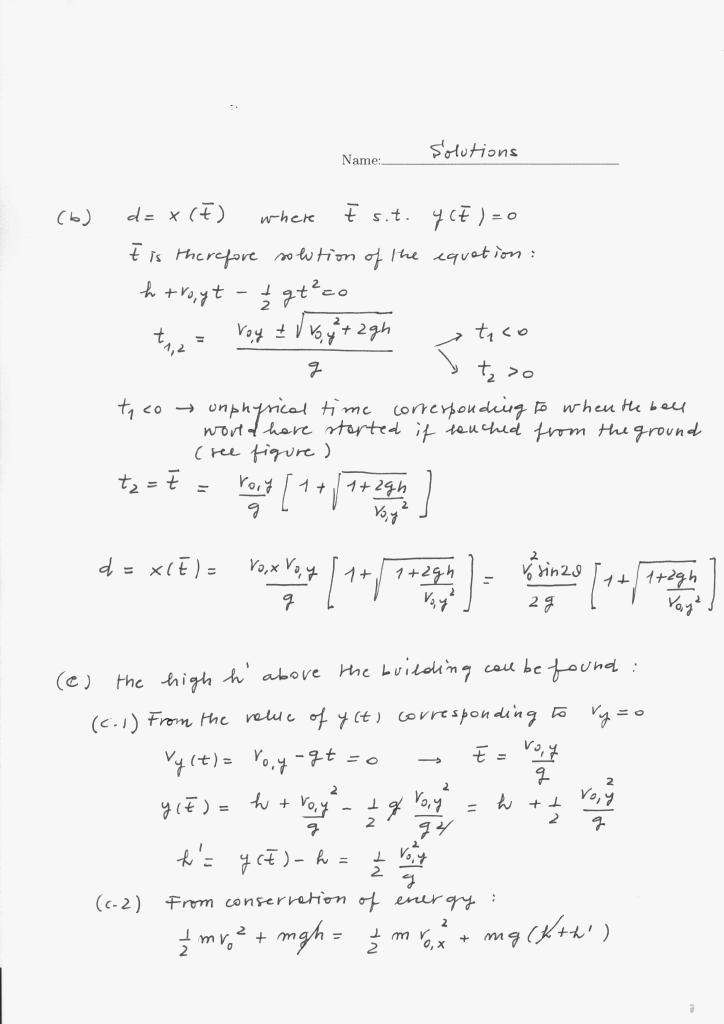 Name: Solutions
(b) d = x(t̄) where t̄ s.t. y(t̄) = 0
t̄ is therefore solution of the equation :
h + v₀,y t − 1/2 gt² = 0
t₁,₂ = (v₀,y ± √(v₀,y² + 2gh)) / g → t₁ < 0 ↘ t₂ > 0
t₁ < 0 → unphysical time corresponding to when the ball
would have started if lauched from the ground
(see figure)
t₂ = t̄ = v₀,y/g [1 + √(1 + 2gh/v₀,y²)]
d = x(t̄) = v₀,x v₀,y/g [1 + √(1 + 2gh/v₀,y²)] = v₀² sin2θ/2g [1 + √(1 + 2gh/v₀,y²)]
(c) the high h' above the building can be found :
(c.1) From the value of y(t) corresponding to vy = 0
vy(t) = v₀,y − gt = 0 → t̄ = v₀,y/g
y(t̄) = h + v₀,y²/g − 1/2 g v₀,y²/g² = h + 1/2 v₀,y²/g
h' = y(t̄) − h = 1/2 v₀,y²/g
(c-2) From conservation of energy :
1/2 mv₀² + mgh = 1/2 m v₀,x² + mg(h + h')